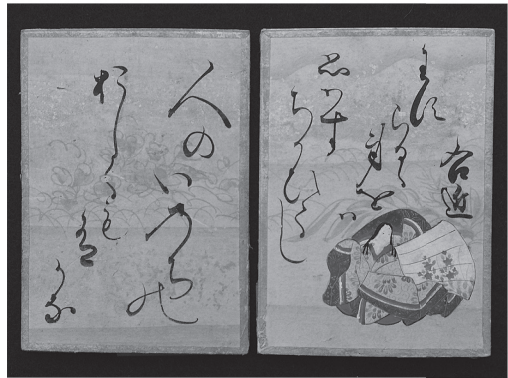 右近
わす
らるゝ
身をハ
思ハす
ちかひてし
人の
いのちの
おしくも
有
かな